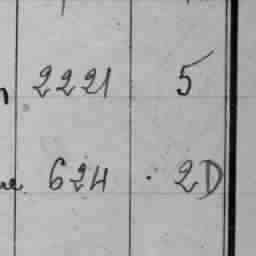 2221 5
624 . 2D